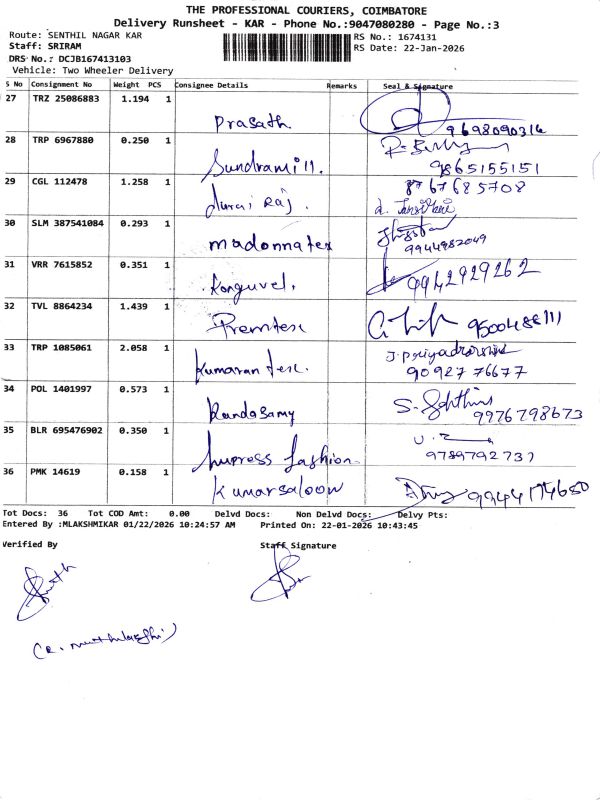 THE PROFESSIONAL COURIERS, COIMBATORE
Delivery Runsheet - KAR - Phone No.:9047080280 - Page No.:3
Route: SENTHIL NAGAR KAR RS No.: 1674131
Staff: SRIRAM RS Date: 22-Jan-2026
DRS No.: DCJB167413103
Vehicle: Two Wheeler Delivery
S No Consignment No Weight PCS Consignee Details Remarks Seal & Signature
27 TRZ 25086883 1.194 1 Prasath 9698090316
28 TRP 6967880 0.250 1 9865155151
29 CGL 112478 1.258 1 durai Raj. 8767685708
30 SLM 387541084 0.293 1 madonnatex 9944982049
31 VRR 7615852 0.351 1 Konguvel. 9942929262
32 TVL 8864234 1.439 1 Premtex 9500488111
33 TRP 1085061 2.058 1 Kumaran tex. J.Priyadharshini
90927 76677
34 POL 1401997 0.573 1 Kandasamy 9976798673
35 BLR 695476902 0.350 1 Impress fashion 9789792737
36 PMK 14619 0.158 1 Kumarsaloon 9944174680
Tot Docs: 36 Tot COD Amt: 0.00 Delvd Docs: Non Delvd Docs: Delvy Pts:
Entered By :MLAKSHMIKAR 01/22/2026 10:24:57 AM Printed On: 22-01-2026 10:43:45
Verified By Staff Signature